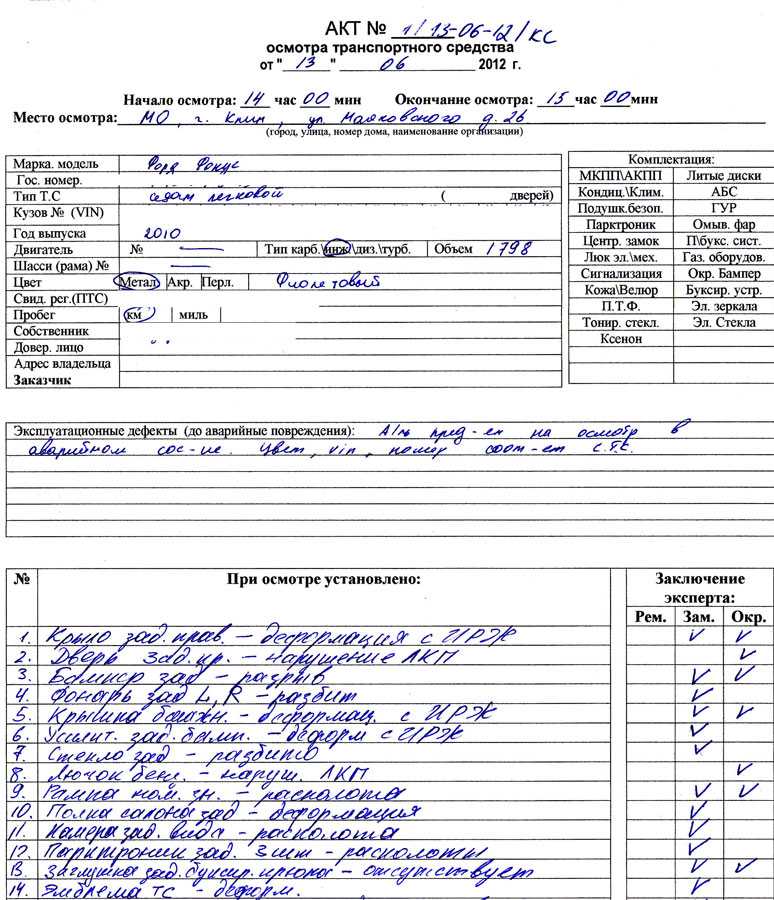 АКТ № 1/13-06-12/КС
осмотра транспортного средства
от "13" 06 2012 г.
Начало осмотра: 14 час 00 мин Окончание осмотра: 15 час 00 мин
Место осмотра: МО, г. Клин, ул. Маяковского д. 26
(город, улица, номер дома, наименование организации)
Марка. модель Форд Фокус
Гос. номер.
Тип Т.С седан легковой ( дверей)
Кузов № (VIN)
Год выпуска 2010
Двигатель № — Тип карб.\инж\диз.\турб. Объем 1798
Шасси (рама) № —
Цвет Метал Акр. Перл. Фиолетовый
Свид. рег.(ПТС)
Пробег км миль
Собственник
Довер. лицо
Адрес владельца
Заказчик
Комплектация:
МКПП\АКПП Литые диски
Кондиц.\Клим. АБС
Подушк.безоп. ГУР
Парктроник Омыв. фар
Центр. замок П\букс. сист.
Люк эл.\мех. Газ. оборудов.
Сигнализация Окр. Бампер
Кожа\Велюр Буксир. устр.
П.Т.Ф. Эл. зеркала
Тонир. стекл. Эл. Стекла
Ксенон
Эксплуатационные дефекты (до аварийные повреждения): А/м пред-ен на осмотр в
аварийном сос-ие. Цвет, vin, номер соот-ет С.Т.С.
№ При осмотре установлено: Заключение
эксперта:
Рем. Зам. Окр.
1. Крыло зад. прав. – деформация с ИРЖ ✓ ✓
2. Дверь зад. пр. – нарушение ЛКП ✓
3. Бампер зад – разрыв ✓ ✓
4. Фонарь зад L, R – разбит ✓
5. Крышка багажн. – деформац. с ИРЖ ✓ ✓
6. Усилит. зад. бамп. – деформ с ИРЖ ✓
7. Стекло зад – разбито ✓
8. Лючок бенз. – наруш. ЛКП ✓
9. Рамка ном. зн. – расколота ✓ ✓
10. Полка салона зад – деформация ✓
11. Камера зад. вида – расколота ✓
12. Парктроник зад. 3 шт – расколоты ✓
13. Заглушка зад. буксир. крюка – отсутствует ✓ ✓
14. Эмблема ТС – деформ. ✓